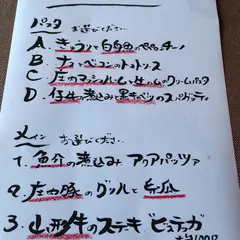 パスタ お選びください
A. きゅうりと白身魚のペペロンチーノ
B. ナスとベーコンのトマトソース
C. 庄内マッシュルームと生ハムのクリームパスタ
D. 仔牛の煮込みと黒キャベツのスパゲッティ
メイン お選びください
1. 魚介の煮込み アクアパッツァ
2. 庄内豚のグリルと糸瓜
3. 山形牛のステキ ビステッカ